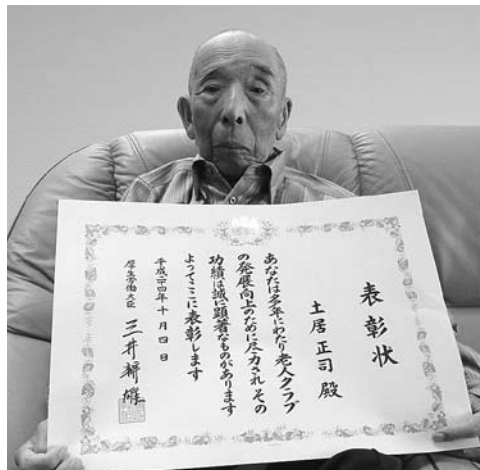 表彰状
土居正司 殿
あなたは多年にわたり老人クラブ
の発展向上のために尽力され その
功績は誠に顕著なものがあります
よってここに表彰します
平成二四年十月四日
厚生労働大臣 三井辨雄